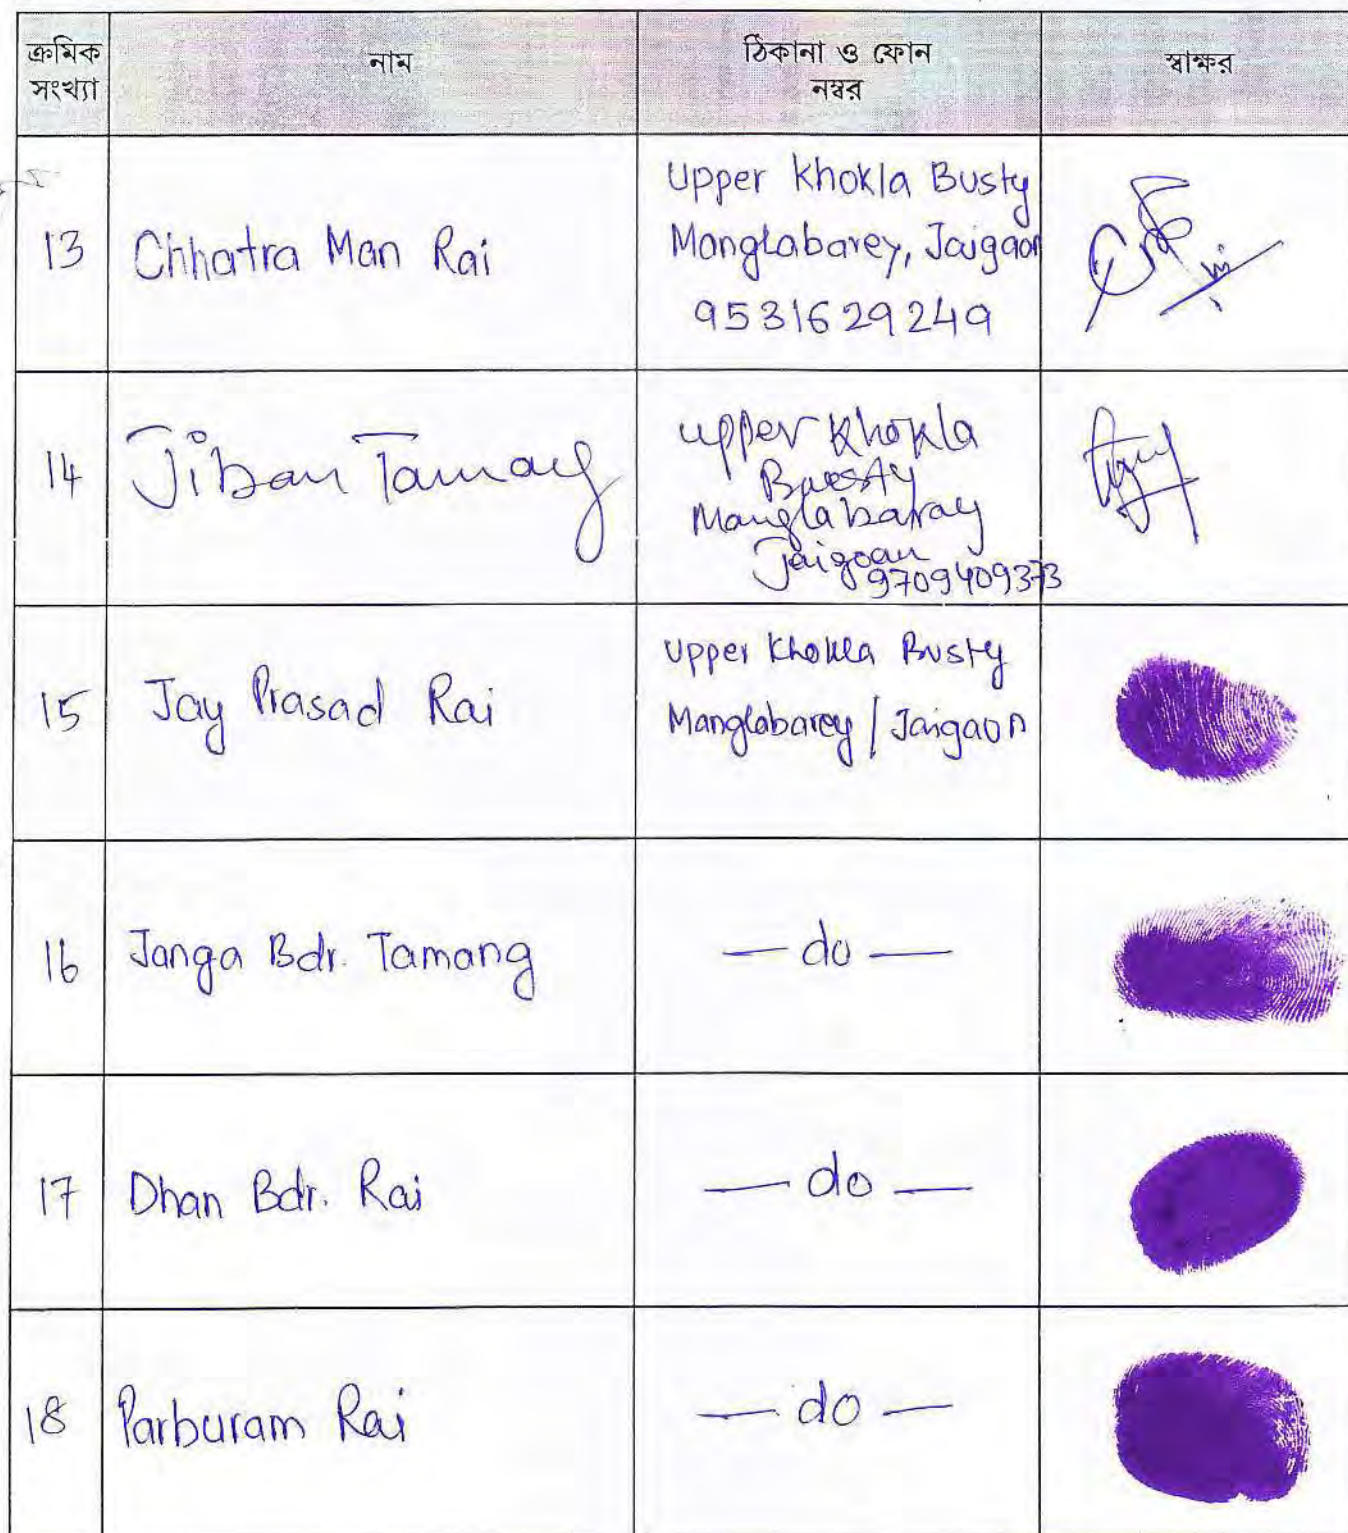 ক্রমিক সংখ্যা নাম ঠিকানা ও ফোন নম্বর স্বাক্ষর
13 Chhatra Man Rai
Upper Khokla Busty
Manglabarey, Jaigaon
9531629249
14 Jiban Tamang
upper Khokla
Buesty
Manglabaray
Jaigoan
9709409373
15 Jay Prasad Rai
Upper Khokla Busty
Manglabarey / Jaigaon
16 Janga Bdr. Tamang — do —
17 Dhan Bdr. Rai — do —
18 Parburam Rai — do —